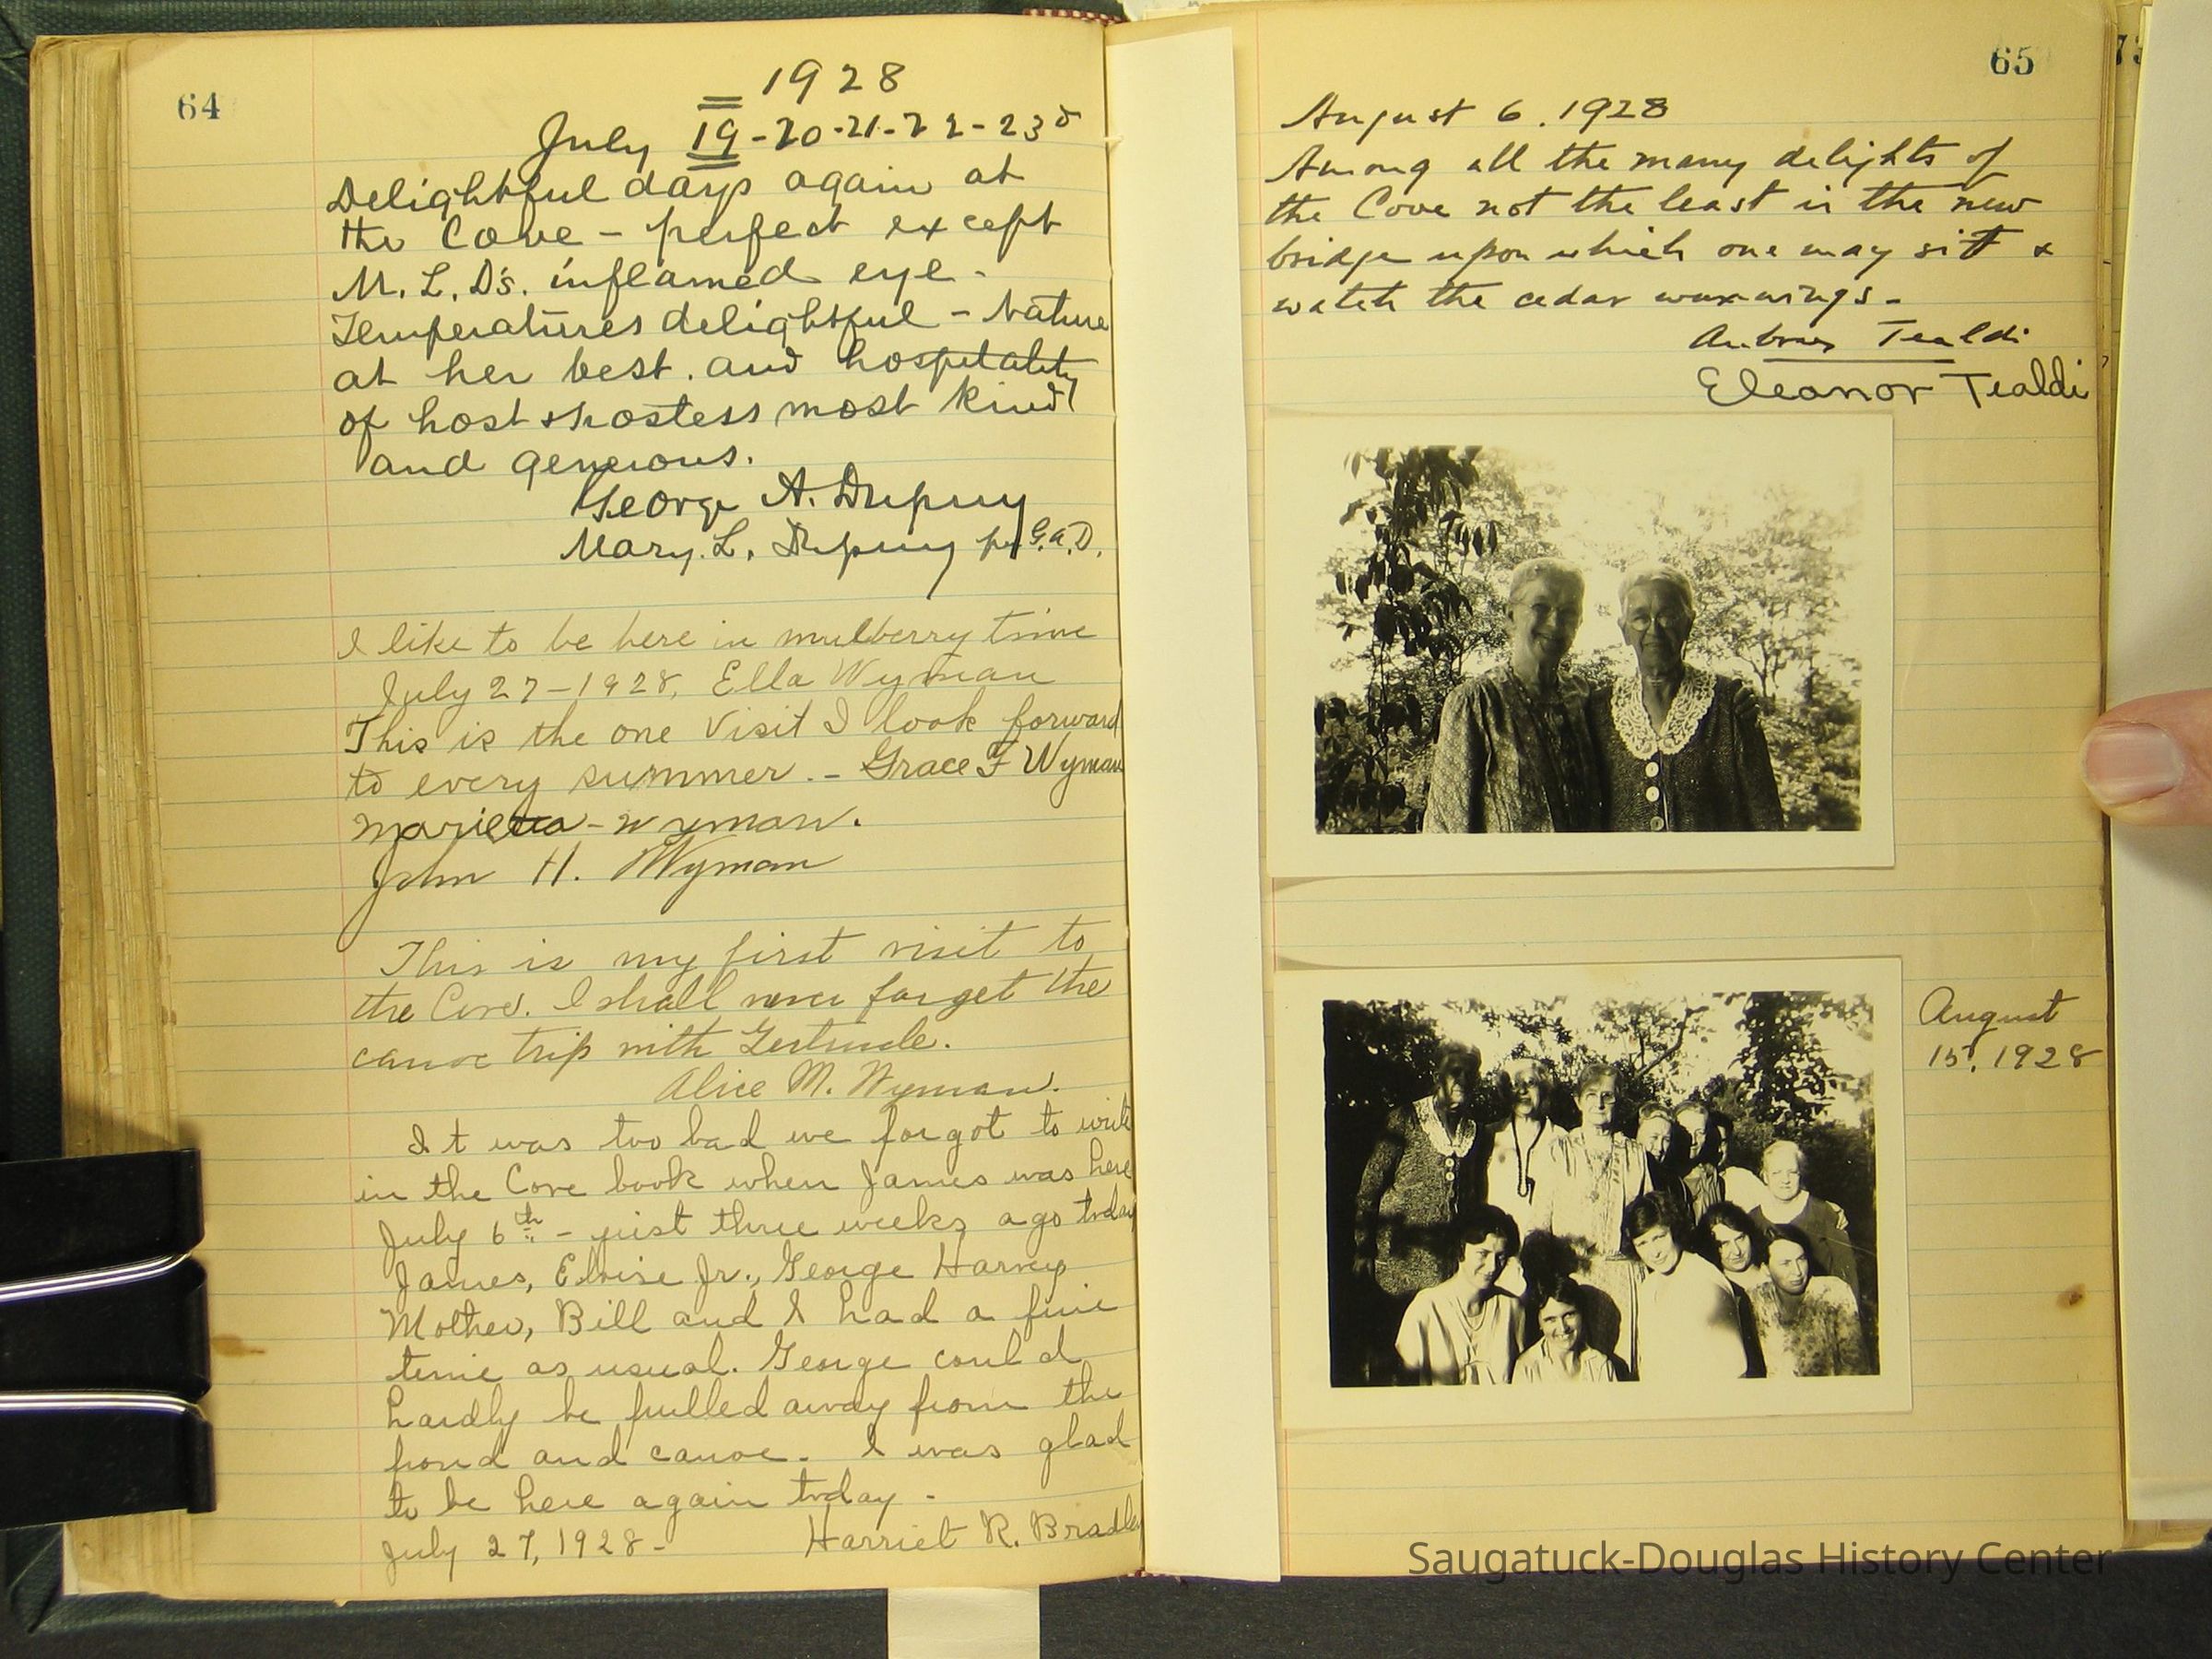 64
1928
July 19-20-21-22-23d
Delightful days again at
the Cove - perfect except
M. L. D's. inflamed eye -
Temperatures delightful - Nature
at her best. and hospitality
of host & hostess most kind
and generous.
George A. Dupuy
Mary. L. Dupuy per G.A.D.
I like to be here in mulberry time
July 27-1928, Ella Wyman
This is the one visit I look forward
to every summer. - Grace F Wyman
Marietta - Wyman.
John H. Wyman
This is my first visit to
the Cove. I shall never forget the
canoe trip with Gertrude.
Alice M. Wyman.
It was too bad we forgot to write
in the Cove book when James was here
July 6th - just three weeks ago today
James, Eloise Jr., George Harvey
Mother, Bill and I had a fine
time as usual. George could
hardly be pulled away from the
pond and canoe. I was glad
to be here again today -
July 27, 1928- Harriet R. Bradley
65
August 6. 1928
Among all the many delights of
the Cove not the least is the new
bridge upon which one may sit &
watch the cedar waxwings -
Tealdi
Eleanor Tealdi
August
15, 1928
Saugatuck-Douglas History Center